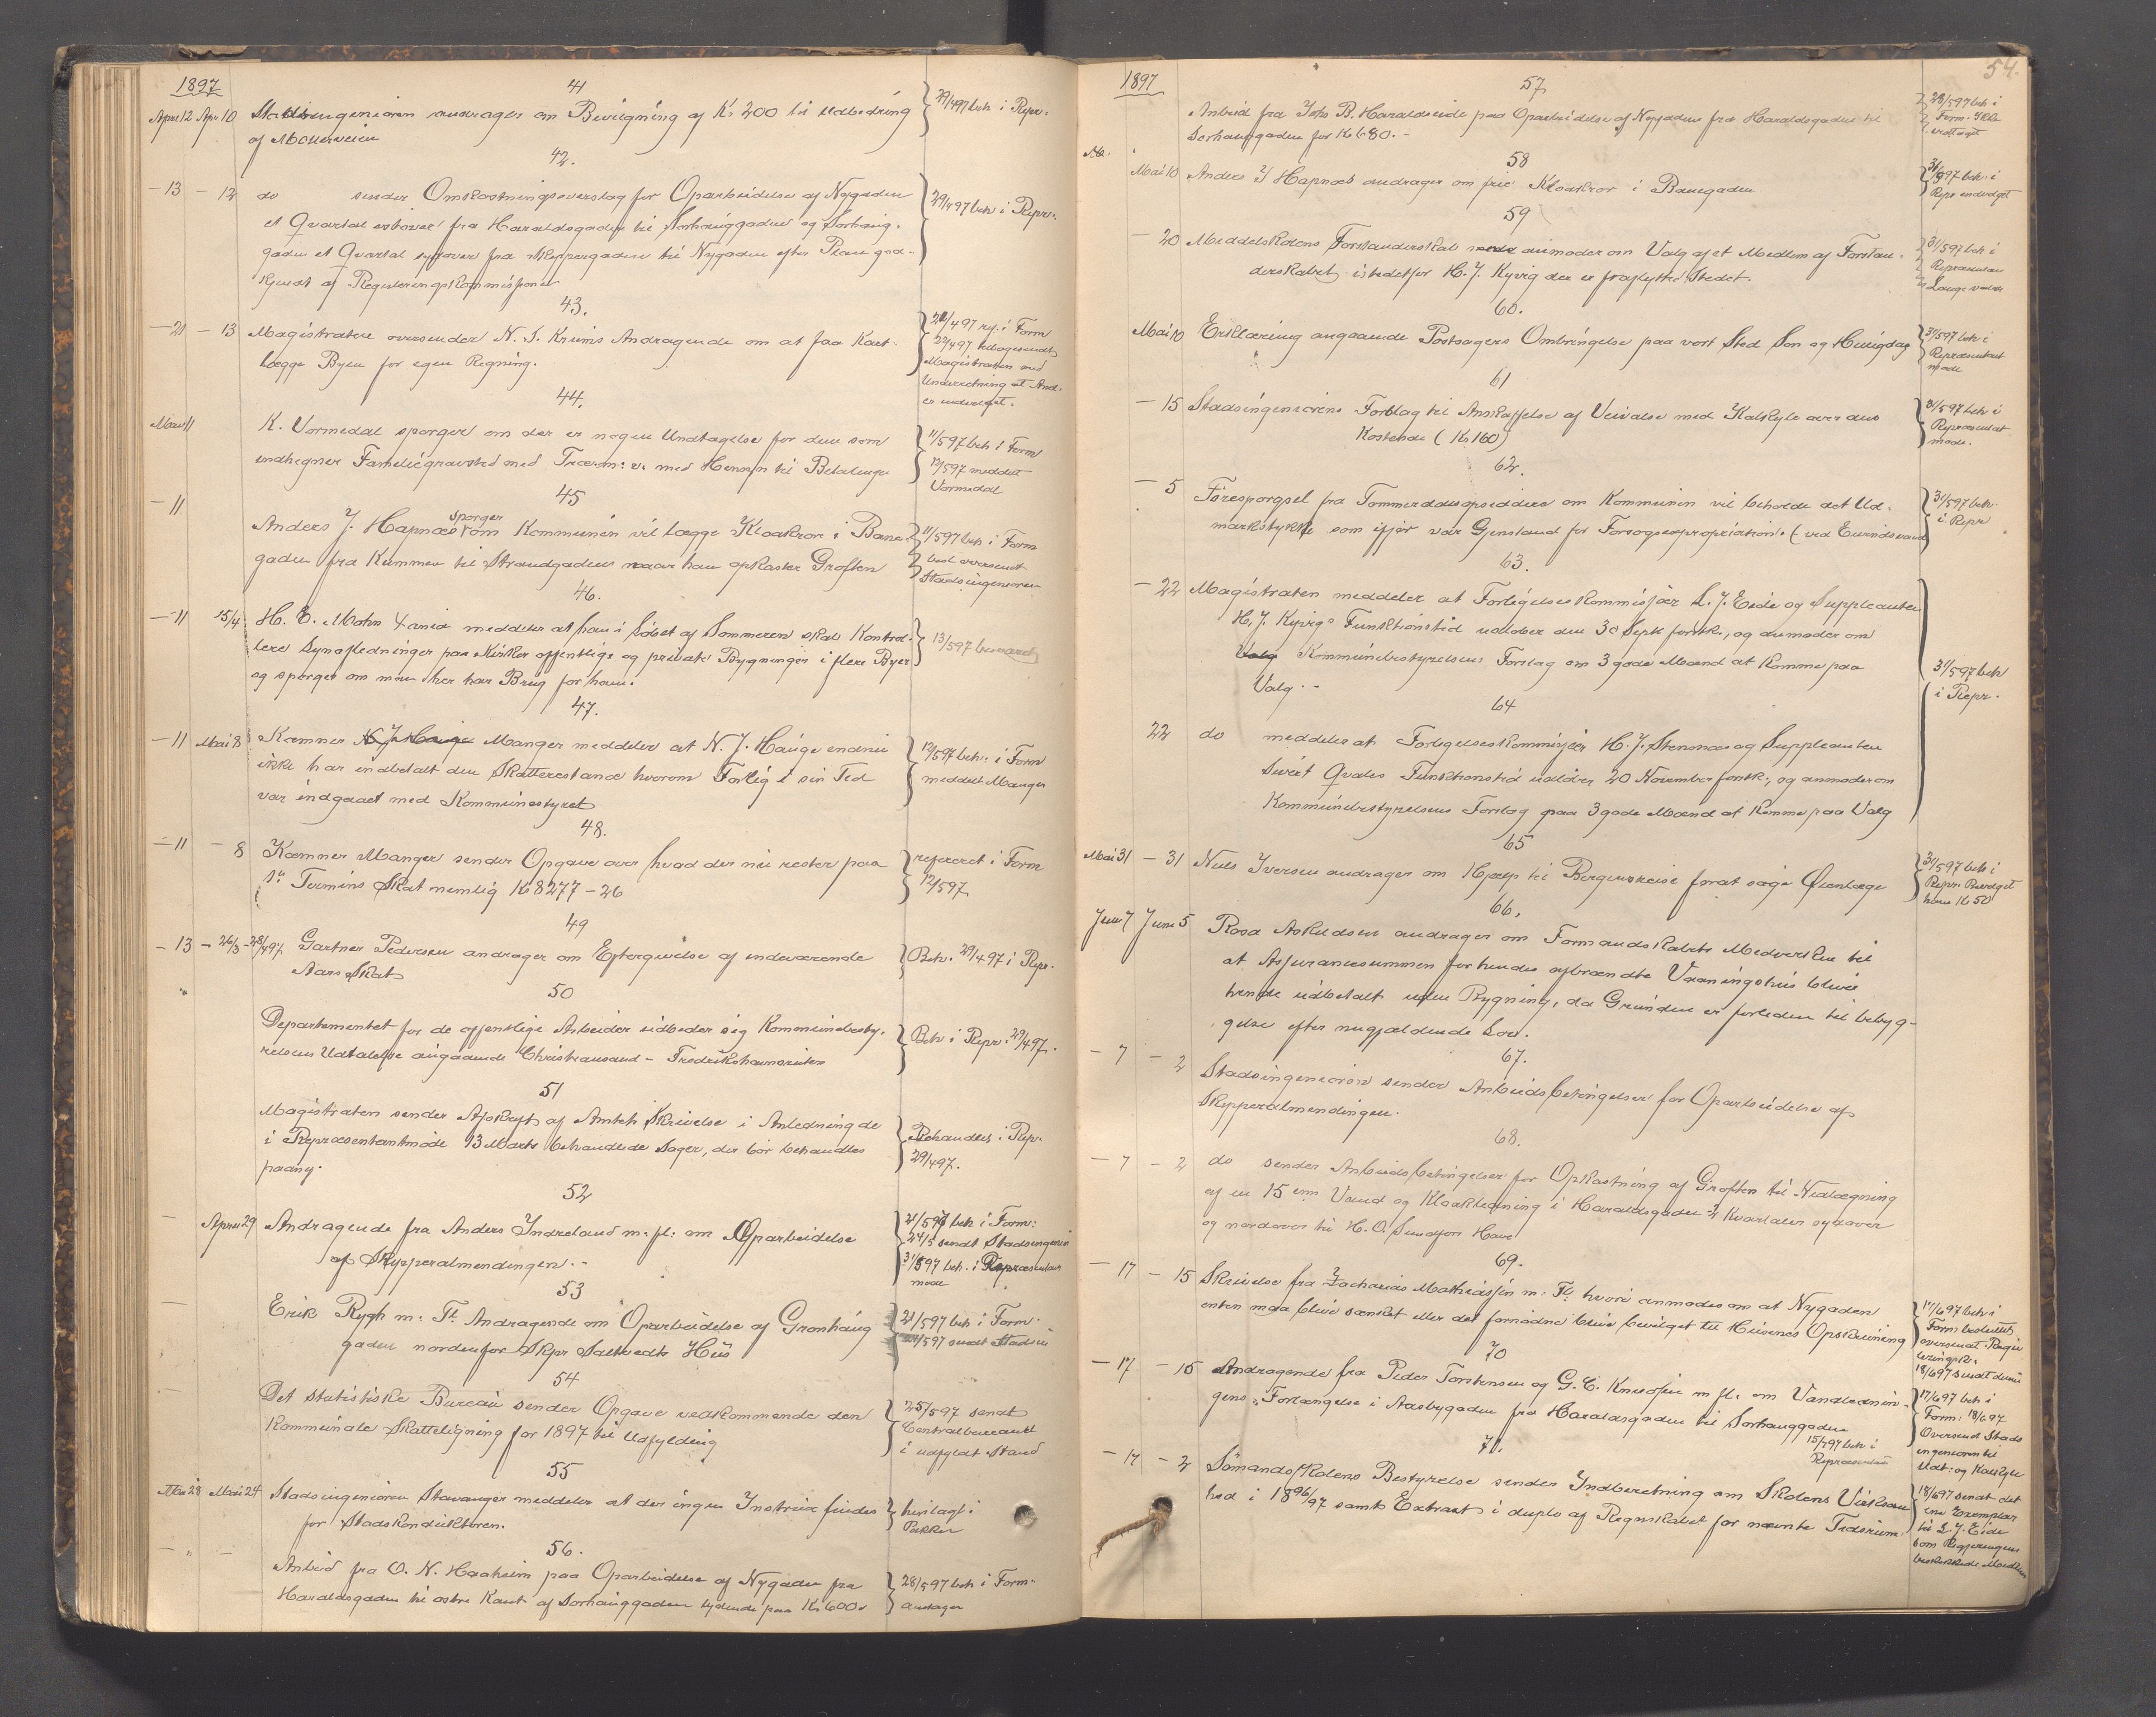 1897
41
April 12 Apr 10 Stadsingeniøren andrager om Bevilgning af Kr 200 til Udbedring
af Mollerveien
29/4 97 beh i Repr.
42.
- 13 - 12 do sender Omkostningsoverslag for Oparbeidelse af Nygaden
et Qvartal østover fra Haraldsgaden til Sørhauggaden og Sørhaug-
gaden et Qvartal sydover fra Skippergaden til Nygaden efter Plan god-
kjendt af Reguleringskommissionen
29/4 97 beh i Repr.
43.
- 21 - 13 Magistraten oversender N. S. Krums Andragende om at faa Kart-
lægge Byen for egen Regning.
22/4 97 ref. i Form
22/4 97 tilbagesendt
Magistraten med
Underretning at And.
er indvilget.
44.
Mai 11 K. Vormedal spørger om der er nogen Undtagelse for dem som
endhegner Familiegravsted med Træer m: v. med Hensyn til Betalingen
11/5 97 beh i Form
12/5 97 meddelt
Vormedal
45
- 11
Anders J. Hapnæs spørger om Kommunen vil lægge Kloakrør i Bane-
gaden fra Kummen til Strandgaden naar han opkaster Grøften
11/5 97 beh i Form
besl. oversendt
Stadsingeniøren
46.
- 11 15/4 H. E. Mohn Xania meddeler at han i Løbet af Sommeren skal Kontrol-
lere Lynafledninger paa Kirker offentlige og private Bygninger i flere Byer
og spørger om man her har Brug for ham.
13/5 97 besvaret
47.
- 11 Mai 8 Kæmner Manger meddeler at N. J. Hauge endnu
ikke har indbetalt den Skatterestance hvorom Forlig i sin Tid
var indgaaet med Kommunestyret
12/5 97 beh: i Form
meddelt Manger
48.
- 11 - 8 Kæmner Manger sender Opgave over hvad der nu rester paa
1ste Termins Skat nemlig Kr 8277-26
refereret i Form
12/5 97
49
- 13 - 26/3 - 28/4 97 Gartner Pedersen andrager om Eftergivelse af indeværende
Aars Skat
Beh. 29/4 97 i Repr.
50
Departementet for de offentlige Arbeider udbeder sig Kommunebesty-
relsens Udtalelse angaaende Christiansand - Fredrikshavnsruten
Beh i Repr. 29/4 97.
51
Magistraten sender Afskrift af Amtets Skrivelse i Anledning de
i Repræsentantmøde 13 Marts behandlede Sager, der bør behandles
paany.
Behandles i Repr.
29/4 97.
52
April 29 Andragende fra Anders Indreland m. fl: om Oparbeidelse
af Skipperalmendingen. -
21/5 97 beh i Form:
24/5 sendt Stadsingeniø
31/5 97 beh. i Repræsentant
møde
53
Erik Rygh m. Fl. Andragende om Oparbeidelse af Grønhaug
gaden nordenfor Skipr Saltvedts Hus
21/5 97 beh i Form.
24/5 97 sendt Stadsin
54
Det statistiske Bureau sender Opgave vedkommende den
Kommunale Skatteligning for 1897 til Udfylding
25/5 97 sendt
Centralbureauet
i udfyldt Stand
55
Mai 28 Mai 24 Stadsingeniøren Stavanger meddeler at der ingen Instrux findes
for Stadskonduktøren.
henlagt i
Pakken
56.
- " - Anbud fra O. N. Haaheim paa Oparbeidelse af Nygaden fra
Haraldsgaden til østre Kant af Sørhauggaden lydende paa Kr 600.
28/5 97 beh i Form.
antages
54.
1897
57
Anbud fra Johs B. Haraldseide paa Oparbeidelse af Nygaden fra Haraldsgaden til
Sørhauggaden for Kr 680. -
28/5 97 beh i
Form. Ikke
antaget
58
Mai 10 Anders J Hapnæs andrager om frie Kloakrør i Banegaden
31/5 97 beh. i
Repr indvilget
59
- 20 Middelskolens Forstanderskab anmoder om Valg af et Medlem af Forstan-
derskabet istedetfor H. J. Kyvig der er fraflyttet Stedet.
31/5 97 beh i
Repræsentan
Lauge valgt
60.
Mai 10 Erklæring angaaende Postsagers Ombringelse paa vort Sted Søn og Heligdag
31/5 97 beh i
Repræsentant
møde
61
- 15 Stadsingeniørens Forslag til Anskaffelse af Veivalse med Kalkyle over dens
Kostende (Kr 160)
31/5 97 beh i
Repræsentant
møde.
62.
- 5 Forespørgsel fra Tømmerdalsopsidderne om Kommunen vil beholde det Ud-
markstykke som ifjor var Gjenstand for Forsøgsexpropriation. (ved Eivindsvand
31/5 97 beh.
i Repr
63.
- 22 Magistraten meddeler at Forligelseskommissær L. J. Eide og Suppleanten
H. J. Kyvigs Funktionstid udløber den 30 Septbr førstk., og anmoder om
Kommunebestyrelsens Forslag om 3 gode Mænd at komme paa
Valg. -
31/5 97 beh
i Repr.
64
22 do meddeler at Forligelseskommissær H. J. Stensnæs og Suppleanten
Sivert Qvales Funktionstid udløber 20 November førstk:, og anmoder om
Kommunebestyrelsens Forslag paa 3 gode Mænd at komme paa Valg
65
Mai 31 - 31 Niels Iversen andrager om Hjælp til Bergensreise forat søge Øienlæge
31/5 97 beh i
Repr. Bevilget
ham Kr 50
66.
Juni 7 Juni 5 Rosa Askildsen andrager om Formandskabets Medvirken til
at Assurancesummen for hendes afbrændte Vaaningshus bliver
hende udbetalt uden Bygning, da Grunden er forliden til bebyg-
gelse efter nugjældende Lov.
67.
- 7 - 2 Stadsingeniøren sender Anbudsbetingelser for Oparbeidelse af
Skipperalmendingen.
68.
- 7 - 2 do sender Anbudsbetingelser for Opkastning af Grøften til Nedlægning
af en 15 cm Vand og Kloakledning i Haraldsgaden 2 Kvartaler sydover
og nordover til H. O. Sundførs Have
69.
- 17 - 15 Skrivelse fra Zacharias Mathiassen m. Fl. hvori anmodes om at Nygaden
enten maa blive sænket eller det fornødne blive bevilget til Husenes Opskruning
17/6 97 beh i
Form besluttet
oversendt Regu
leringsk.
18/6 97 sendt denne
70
- 17 - 15 Andragende fra Peder Torstensen og G. C. Knudsen m fl. om Vandlednin-
gens Forlængelse i Aasbygaden fra Haraldsgaden til Sørhauggaden
17/6 97 beh i
Form. 18/6 97
Oversend Stads
ingeniøren til
Udt. og Kalkyle
71.
15/7 97 beh i
- 17 - 2 Sømandsskolens Bestyrelse sender Indberetning om Skolens Virksom
hed i 1896/97 samt Extract i duplo af Regnskabet for nævnte Tidsrum
18/6 97 sendt det
ene Exemplar
til L. J. Eide
som Regjeringens